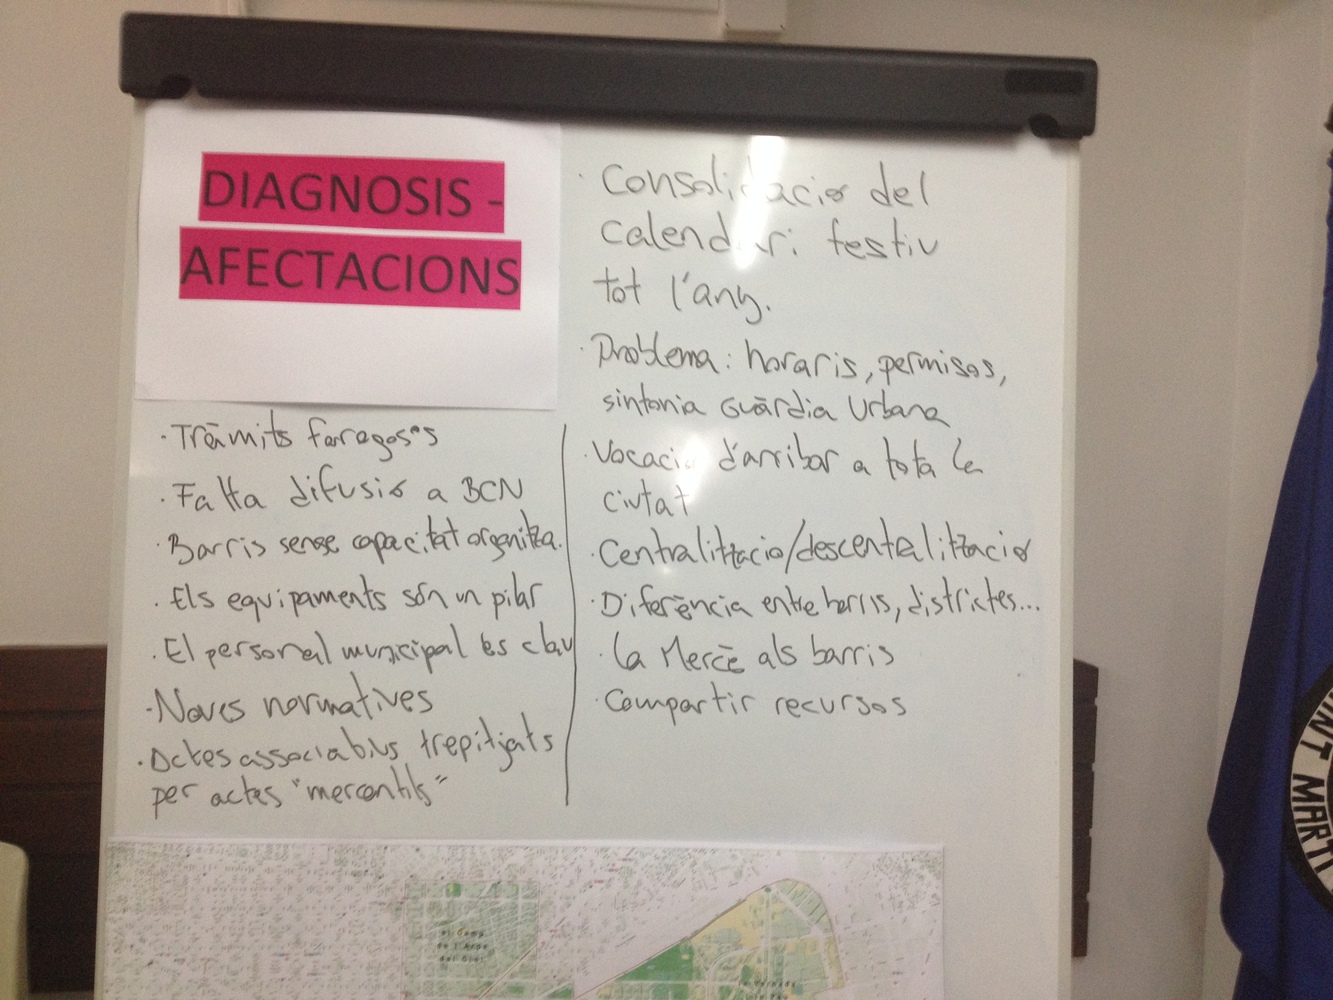 DIAGNOSIS -
AFECTACIONS
· Tràmits faregosos
· Falta difusió a BCN
· Barris sense capacitat organitza.
· Els equipaments són un pilar
· El personal municipal és clau
· Noves normatives
· Actes associatius trepitjats
per actes "mercantils"
· Consolidació del
calendari festiu
tot l'any.
· Problema: horaris, permisos,
sintonia Guàrdia Urbana
· Vocació d'arribar a tota la
ciutat
· Centralització/descentralització
· Diferència entre barris, districtes...
· La Mercè als barris
· Compartir recursos
el Camp
de l'Arpa
del Clot
la Verneda
i la Pau
INT MARTÍ